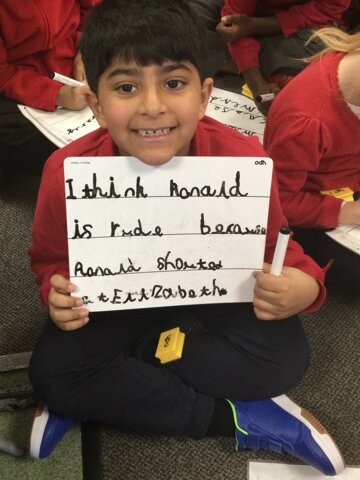 odh
I think Ronald
is rude because
Ronald shouted
at Elizabeth